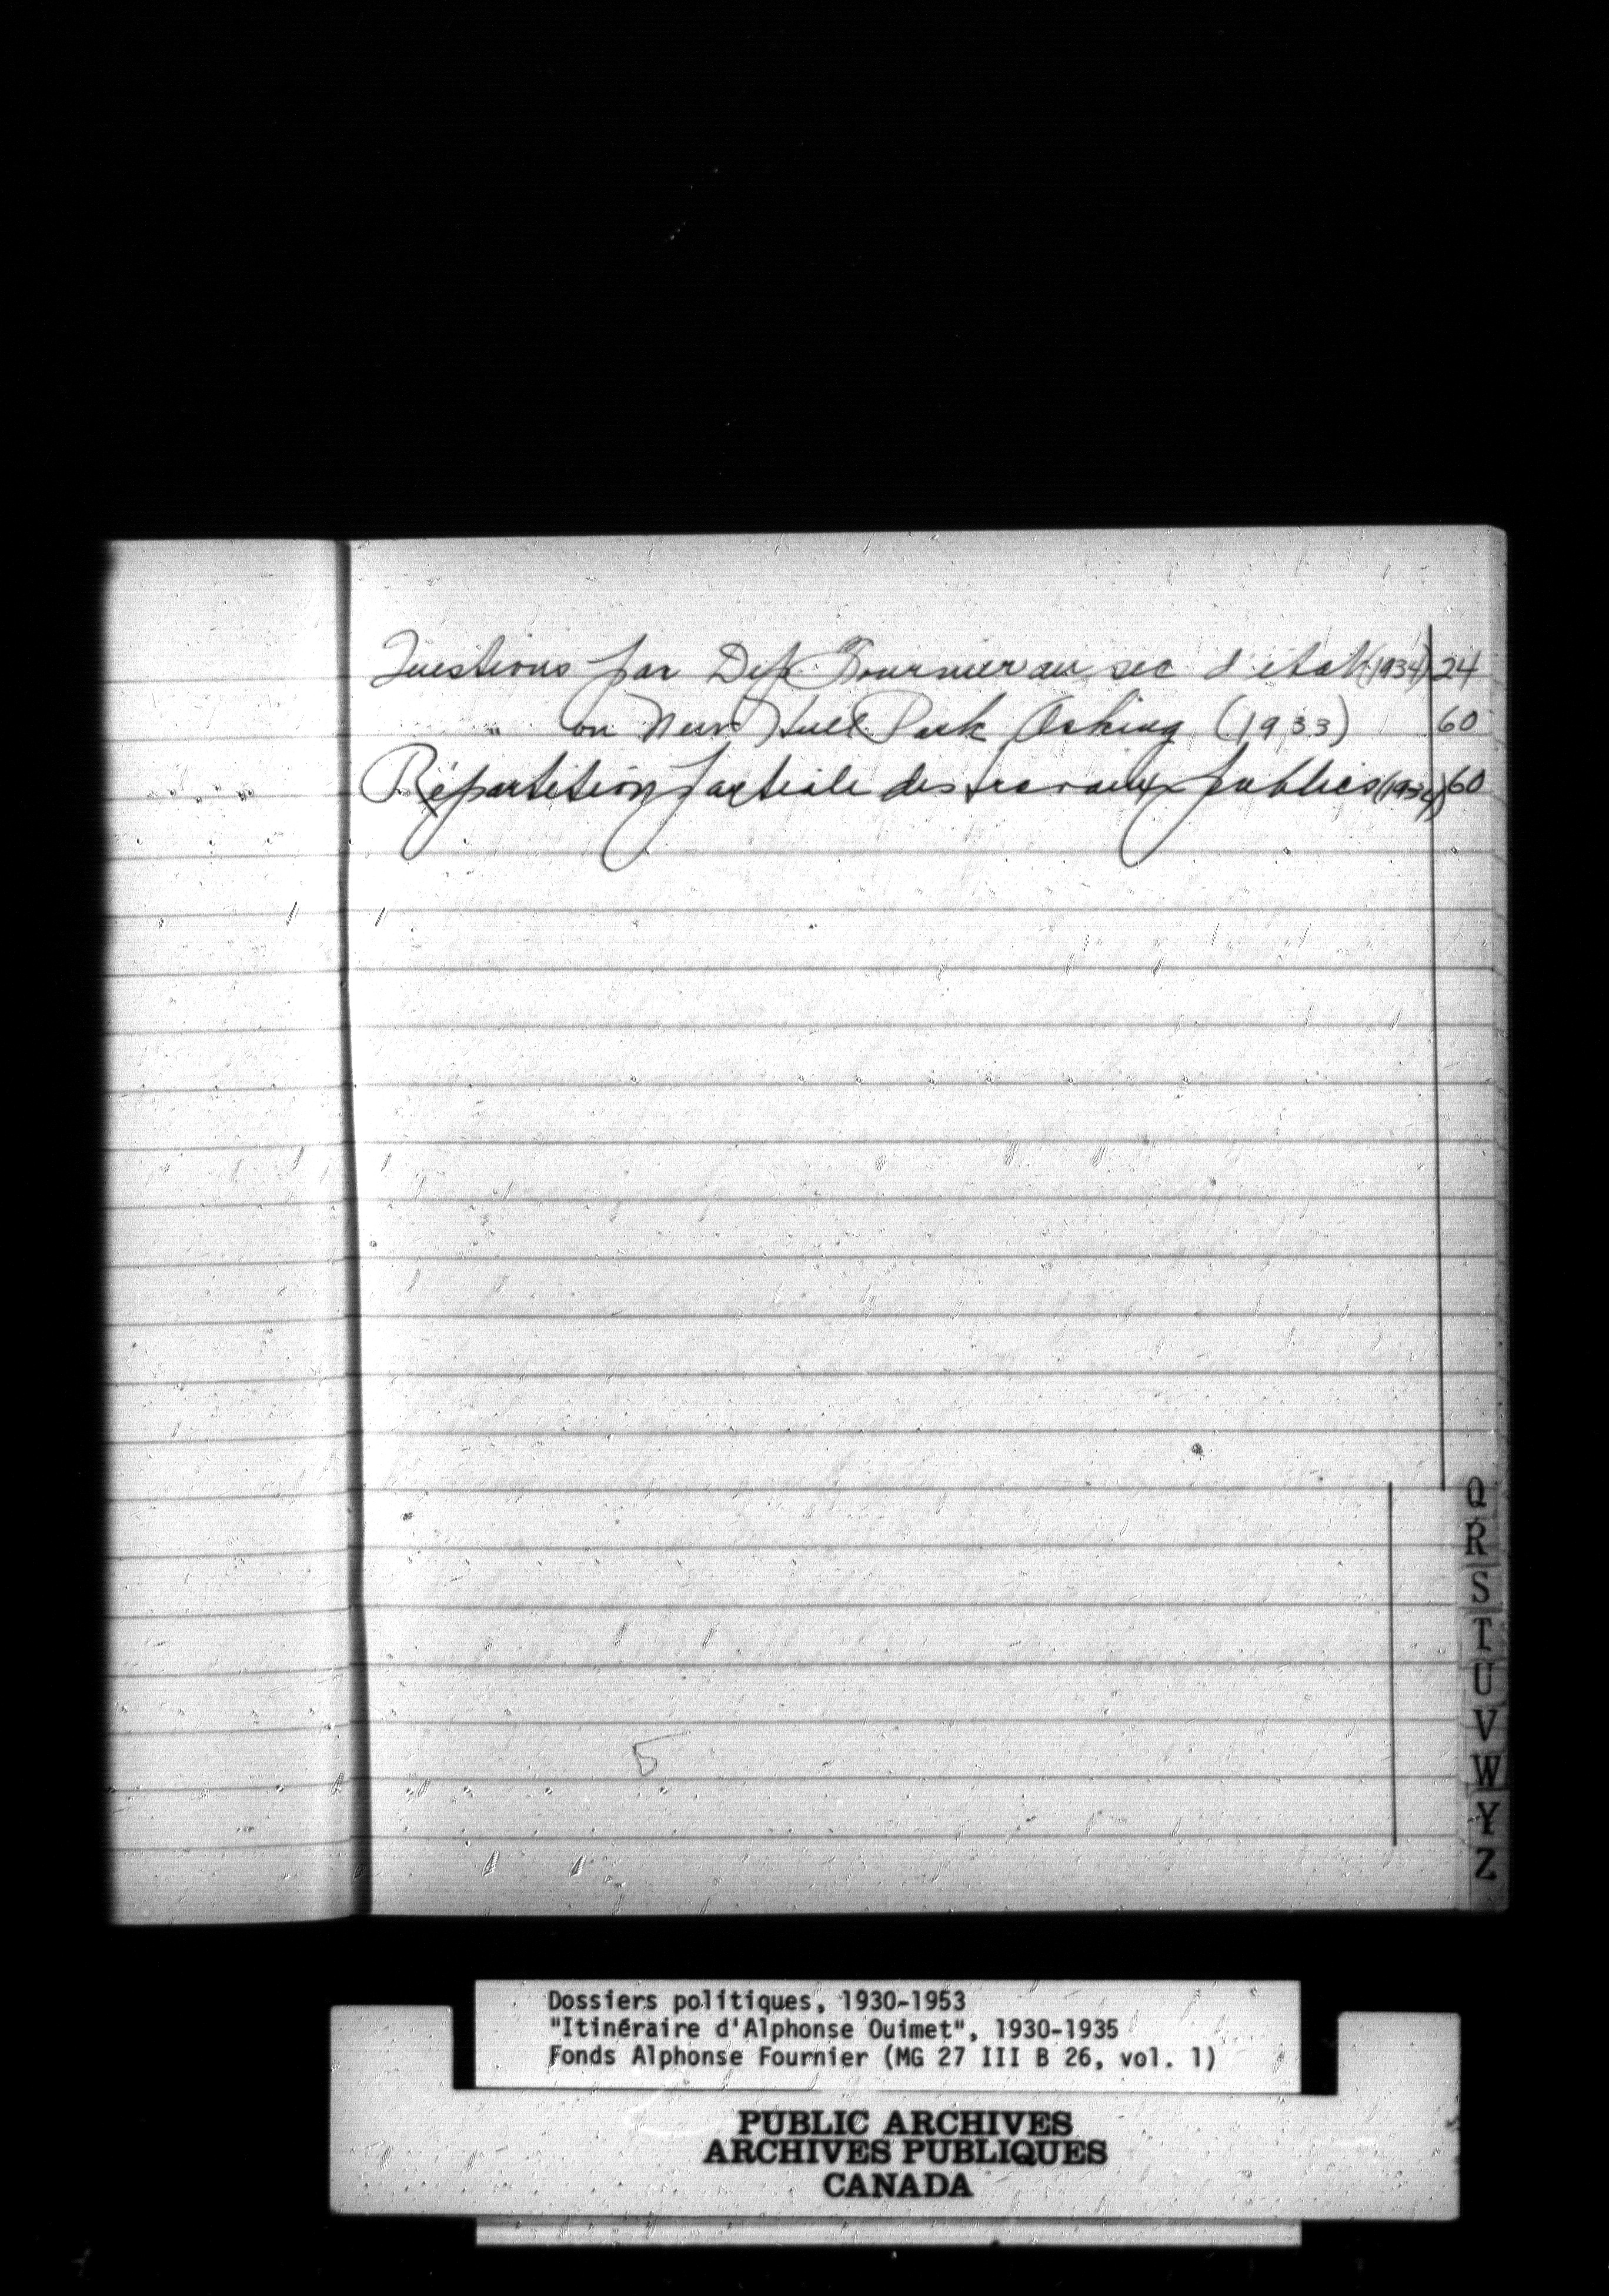 Questions par Dep. Fournier au sec d'état (1934) 24
" on New Hull Park Asking (1933) 60
Répartition partiale des travaux publics (1934) 60
Q
R
S
T
U
V
W
Y
Z
5
Dossiers politiques, 1930-1953
"Itinéraire d'Alphonse Ouimet", 1930-1935
Fonds Alphonse Fournier (MG 27 III B 26, vol. 1)
PUBLIC ARCHIVES
ARCHIVES PUBLIQUES
CANADA